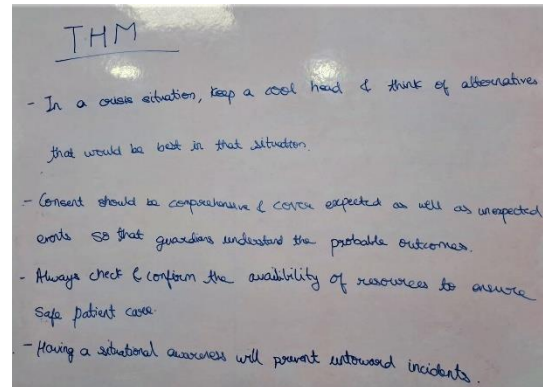 THM
- In a crisis situation, keep a cool head & think of alternatives
that would be best in that situation.
- Consent should be comprehensive & cover expected as well as unexpected
events so that guardians understand the probable outcomes.
- Always check & confirm the availibility of resources to ensure
safe patient care.
- Having a situational awareness will prevent untoward incidents.